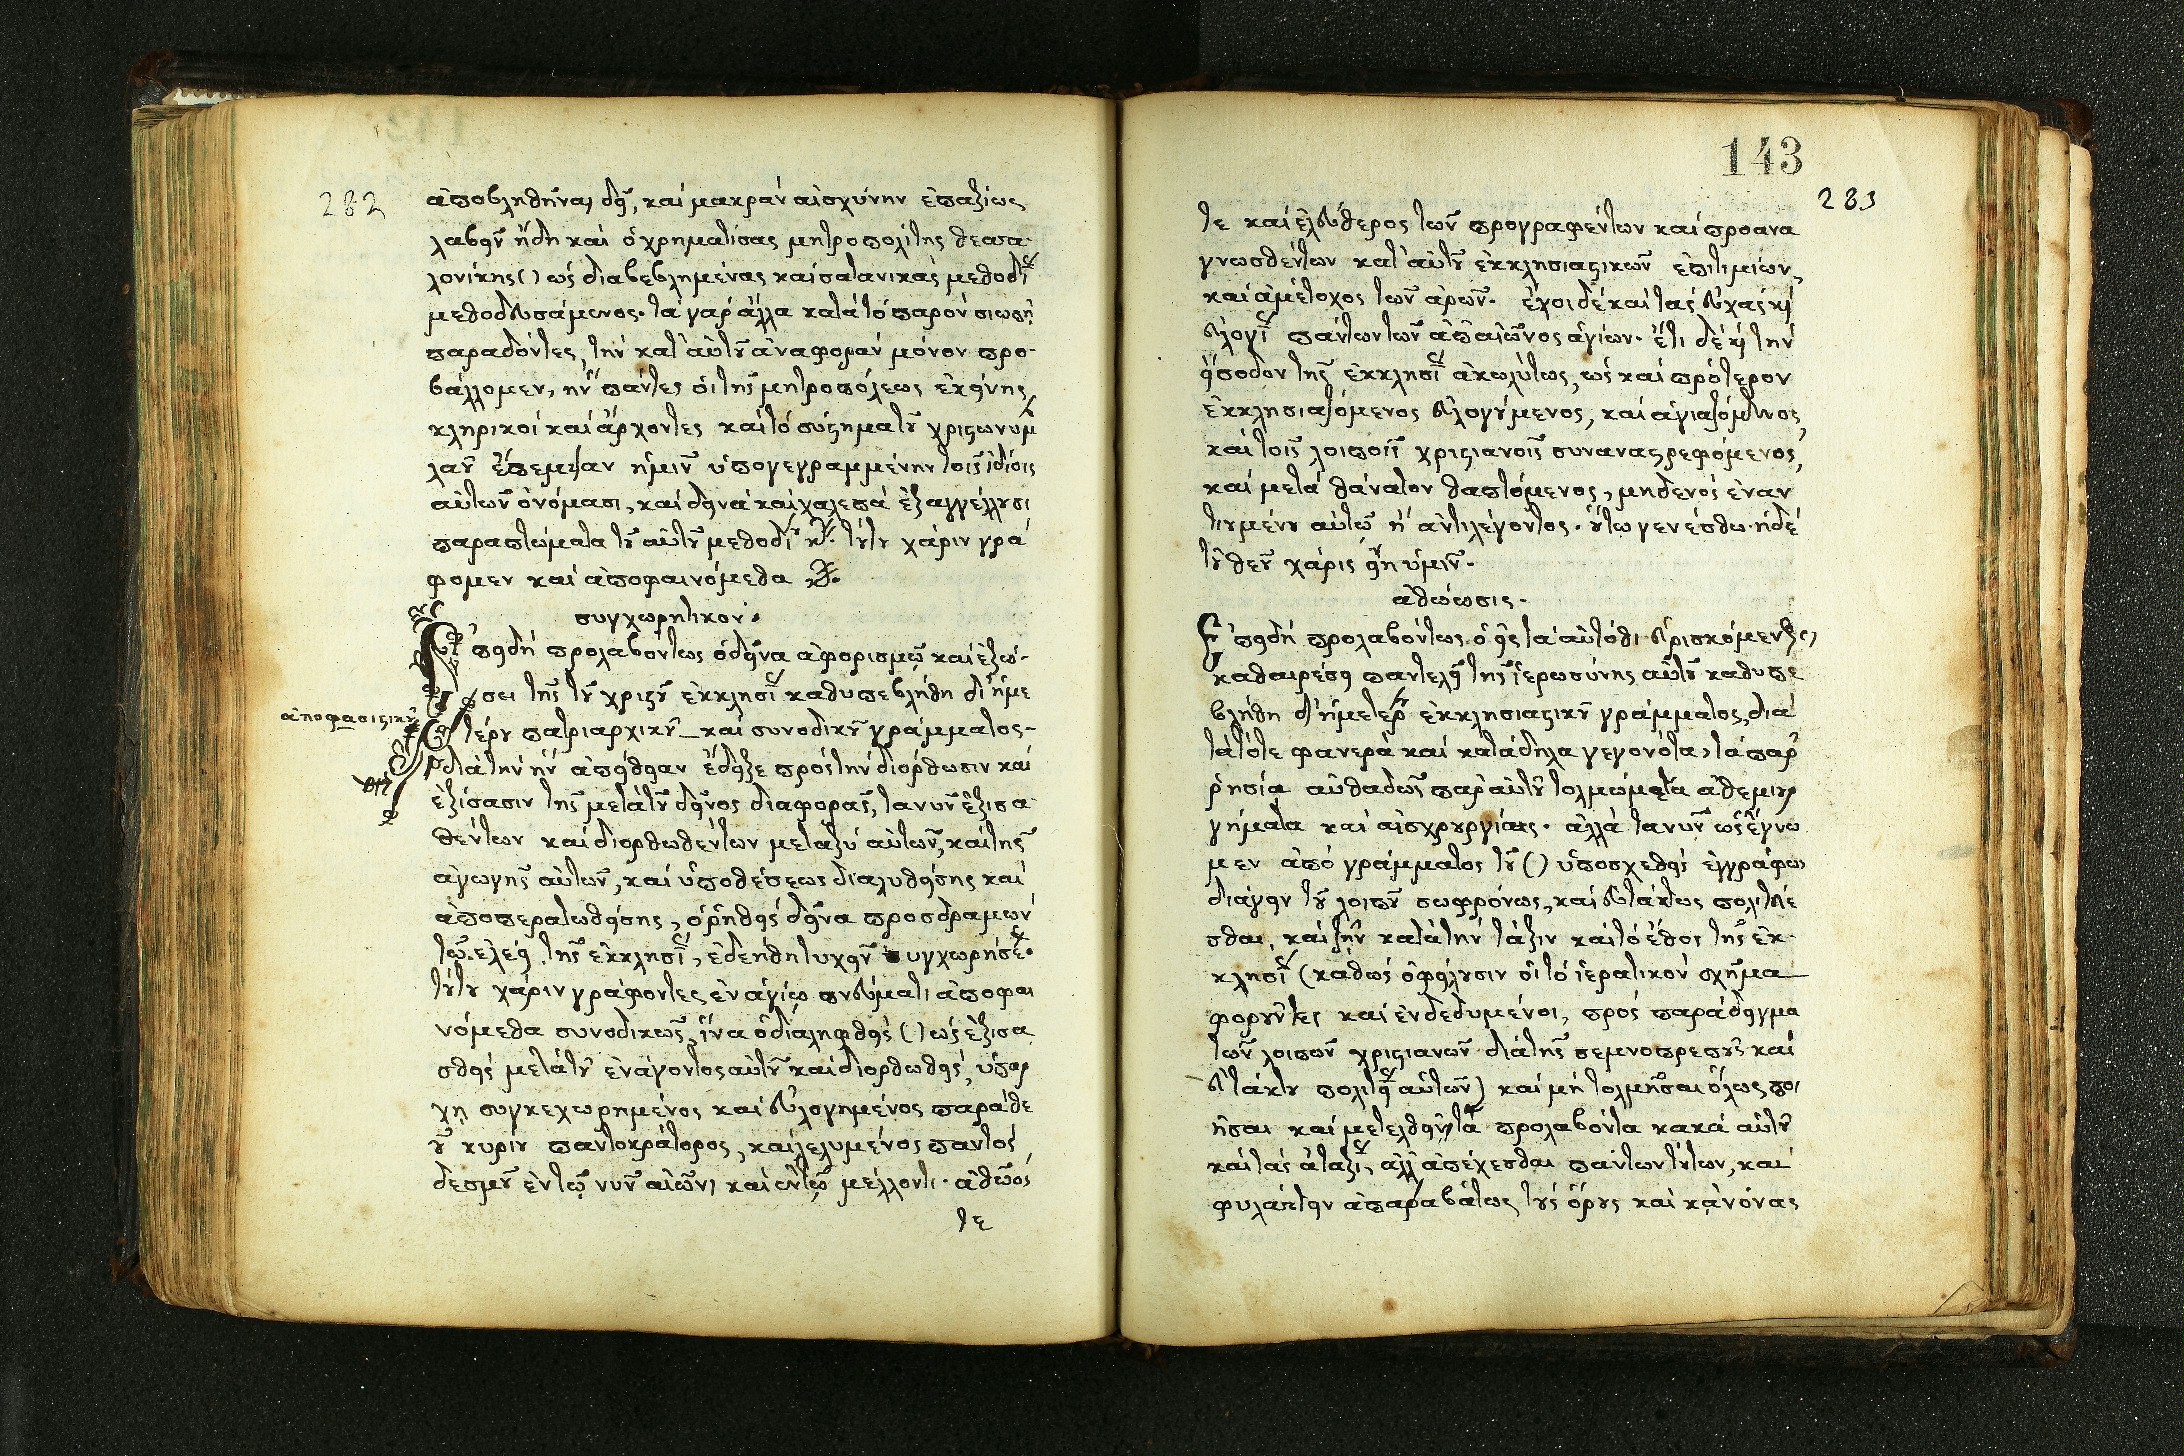 282
ἀποβληθῆναι δεῖ, καὶ μακρὰν αἰσχύνην ἐπαξίως
λαβεῖν ἤδη καὶ ὁ χρηματίσας μητροπολίτης θεσσα
λονίκης () ὡς διαβεβλημένας καὶ σατανικὰς μεθοδί
μεθοδευσάμενος. τὰ γὰρ ἄλλα κατὰ τὸ παρὸν σιωπῇ
παραδόντες, τὴν κατ' αὐτοῦ ἀναφορὰν μόνον προ
βάλλομεν, ἣν πάντες οἱ τῆς μητροπόλεως ἐκείνης
κληρικοὶ καὶ ἄρχοντες καὶ τὸ σύστημα τοῦ χριστωνύμ
λαοῦ ἔπεμψαν ἡμῖν ὑπογεγραμμένην τοῖς ἰδίοις
αὐτῶν ὀνόμασι, καὶ δεινὰ καὶ χαλεπὰ ἐξαγγέλλουσι
παραπτώματα τοῦ αὐτοῦ μεθοδί τούτου χάριν γρά
φομεν καὶ ἀποφαινόμεθα
συγχωρητικόν.
Ἐπειδὴ προλαβόντως ὁ δεῖνα ἀφορισμῷ καὶ ἐξώ
σει τῆς τοῦ χριστοῦ ἐκκλησί καθυπεβλήθη δι' ἡμε
ἀποφασιστικοῦ
τέρου πατριαρχικοῦ καὶ συνοδικοῦ γράμματος
διὰ τὴν ἣν ἀπείθειαν ἔδειξε πρὸς τὴν διόρθωσιν καὶ
ἐξίσασιν τῆς μετὰ τοῦ δεῖνος διαφορᾶς, τανῦν ἐξισα
θέντων καὶ διορθωθέντων μεταξὺ αὐτῶν, καὶ τῆς
ἀγωγῆς αὐτῶν, καὶ ὑποθέσεως διαλυθείσης καὶ
ἀποπερατωθείσης, ὁ ῥηθεὶς δεῖνα προσδραμὼν
τῷ ἐλέει τῆς ἐκκλησί, ἐδεήθη τυχεῖν συγχωρήσε.
τούτου χάριν γράφοντες ἐν ἁγίῳ πνεύματι ἀποφαι
νόμεθα συνοδικῶς, ἵνα ὁ διαληφθεὶς () ὡς ἐξισα
σθεὶς μετὰ τοῦ ἐνάγοντος αὐτοῦ καὶ διορθωθεὶς, ὑπάρ
χῃ συγκεχωρημένος καὶ εὐλογημένος παρὰ θε
οῦ κυρίου παντοκράτορος, καὶ λελυμένος παντὸς
δεσμοῦ ἐν τῷ νῦν αἰῶνι καὶ ἐν τῷ μέλλοντι. ἀθῶός
τε
143
283
τε καὶ ἐλεύθερος τῶν προγραφέντων καὶ προανα
γνωσθέντων κατ' αὐτοῦ ἐκκλησιαστικῶν ἐπιτιμίων,
καὶ ἀμέτοχος τῶν ἀρῶν. ἔχοι δὲ καὶ τὰς εὐχὰς κ
εὐλογί πάντων τῶν ἀπ' αἰῶνος ἁγίων. ἔτι δὲ κ τὴν
εἴσοδον τῆς ἐκκλησί ἀκωλύτως, ὡς καὶ πρότερον
ἐκκλησιαζόμενος εὐλογούμενος, καὶ ἁγιαζόμενος,
καὶ τοῖς λοιποῖς χριστιανοῖς συναναστρεφόμενος,
καὶ μετὰ θάνατον θαπτόμενος, μηδενὸς ἐναν
τιουμένου αὐτῷ ἢ ἀντιλέγοντος. οὕτω γενέσθω. ἡ δὲ
τοῦ θεοῦ χάρις εἴη ὑμῖν.
ἀθώωσις.
Ἐπειδὴ προλαβόντως ὁ αὐτόθι εὑρισκόμεν
καθαιρέσει παντελεῖ τῆς ἱερωσύνης αὐτοῦ καθυπε
βλήθη δι' ἡμετέρ ἐκκλησιαστικοῦ γράμματος, διὰ
τὰ τότε φανερὰ καὶ κατάδηλα γεγονότα, τὰ παρ
ῥησίᾳ αὐθαδῶς παρ' αὐτοῦ τολμώμενα ἀθεμιτουρ
γήματα καὶ αἰσχρουργίας. ἀλλὰ τανῦν ὡς ἔγνω
μεν ἀπὸ γράμματος τοῦ () ὑποσχεθεὶς ἐγγράφως
διάγειν τοῦ λοιποῦ σωφρόνως, καὶ εὐτάκτως πολιτεύε
σθαι, καὶ ζῆν κατὰ τὴν τάξιν καὶ τὸ ἔθος τῆς ἐκ
κλησί (καθὼς ὀφείλουσιν οἱ τὸ ἱερατικὸν σχῆμα
φοροῦντες καὶ ἐνδεδυμένοι, πρὸς παράδειγμα
τῶν λοιπῶν χριστιανῶν διὰ τῆς σεμνοπρεποῦς καὶ
εὐτάκτου πολιτεί αὐτῶν) καὶ μὴ τολμῆσαι ὅλως ποι
ῆσαι καὶ μετελθεῖν τὰ προλαβόντα κακὰ αὐτοῦ
καὶ τὰς ἀταξί, ἀλλ' ἀπέχεσθαι πάντων τούτων, καὶ
φυλάττειν ἀπαραβάτως τοὺς ὅρους καὶ κανόνας